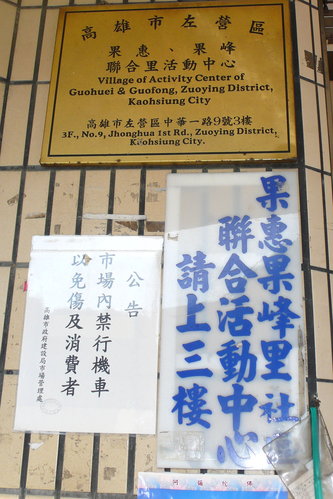 高雄市左營區
果惠、果峰
聯合里活動中心
Village of Activity Center of
Guohuei & Guofong, Zuoying District,
Kaohsiung City
高雄市左營區中華一路9號3樓
3F., No.9, Jhonghua 1st Rd., Zuoying District,
Kaohsiung City.
公告
市場內禁行機車
以免傷及消費者
高雄市政府建設局市場管理處
果惠果峰里社
聯合活動中心
請上三樓
阿彌陀佛